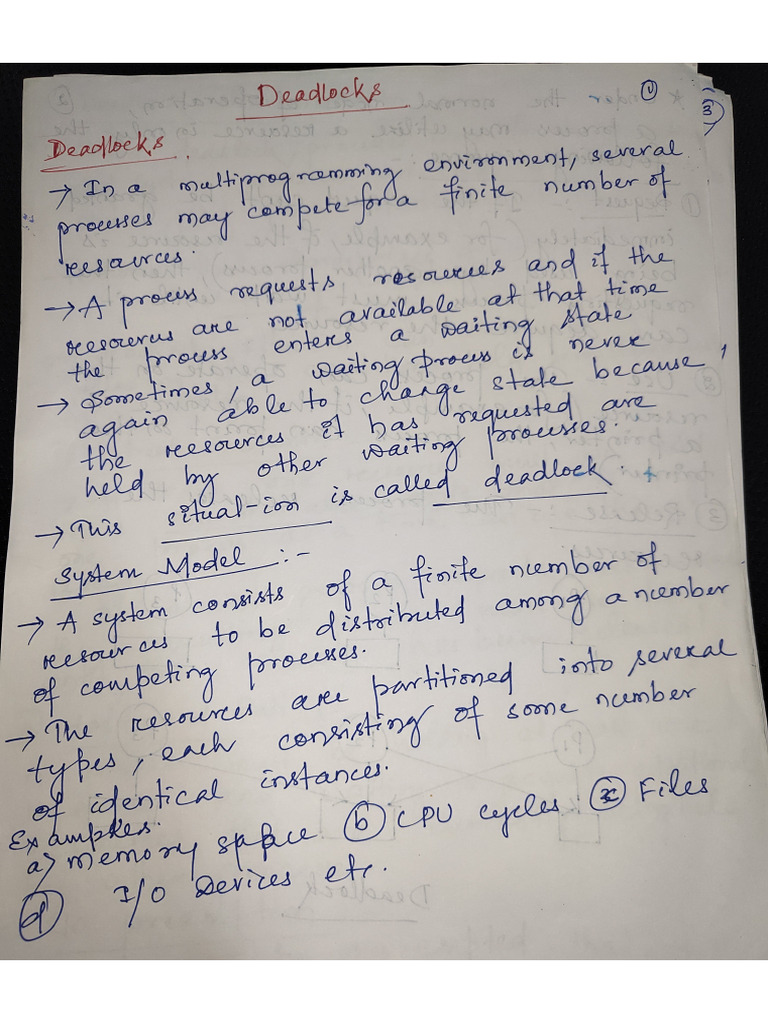 Deadlocks
1
3
Deadlocks.
→ In a multiprogramming environment, several
processes may compete for a finite number of
resources.
→ A process requests resources and if the
resources are not available at that time
the process enters a waiting state
→ Sometimes, a waiting process is never
again able to change state because,
the resources it has requested are
held by other waiting processes.
→ This situat-ion is called deadlock.
System Model :-
→ A system consists of a finite number of
resources to be distributed among a number
of competing processes.
→ The resources are partitioned into several
types, each consisting of some number
of identical instances.
Examples.
a) memory space b CPU cycles c Files
d I/O Devices etc.